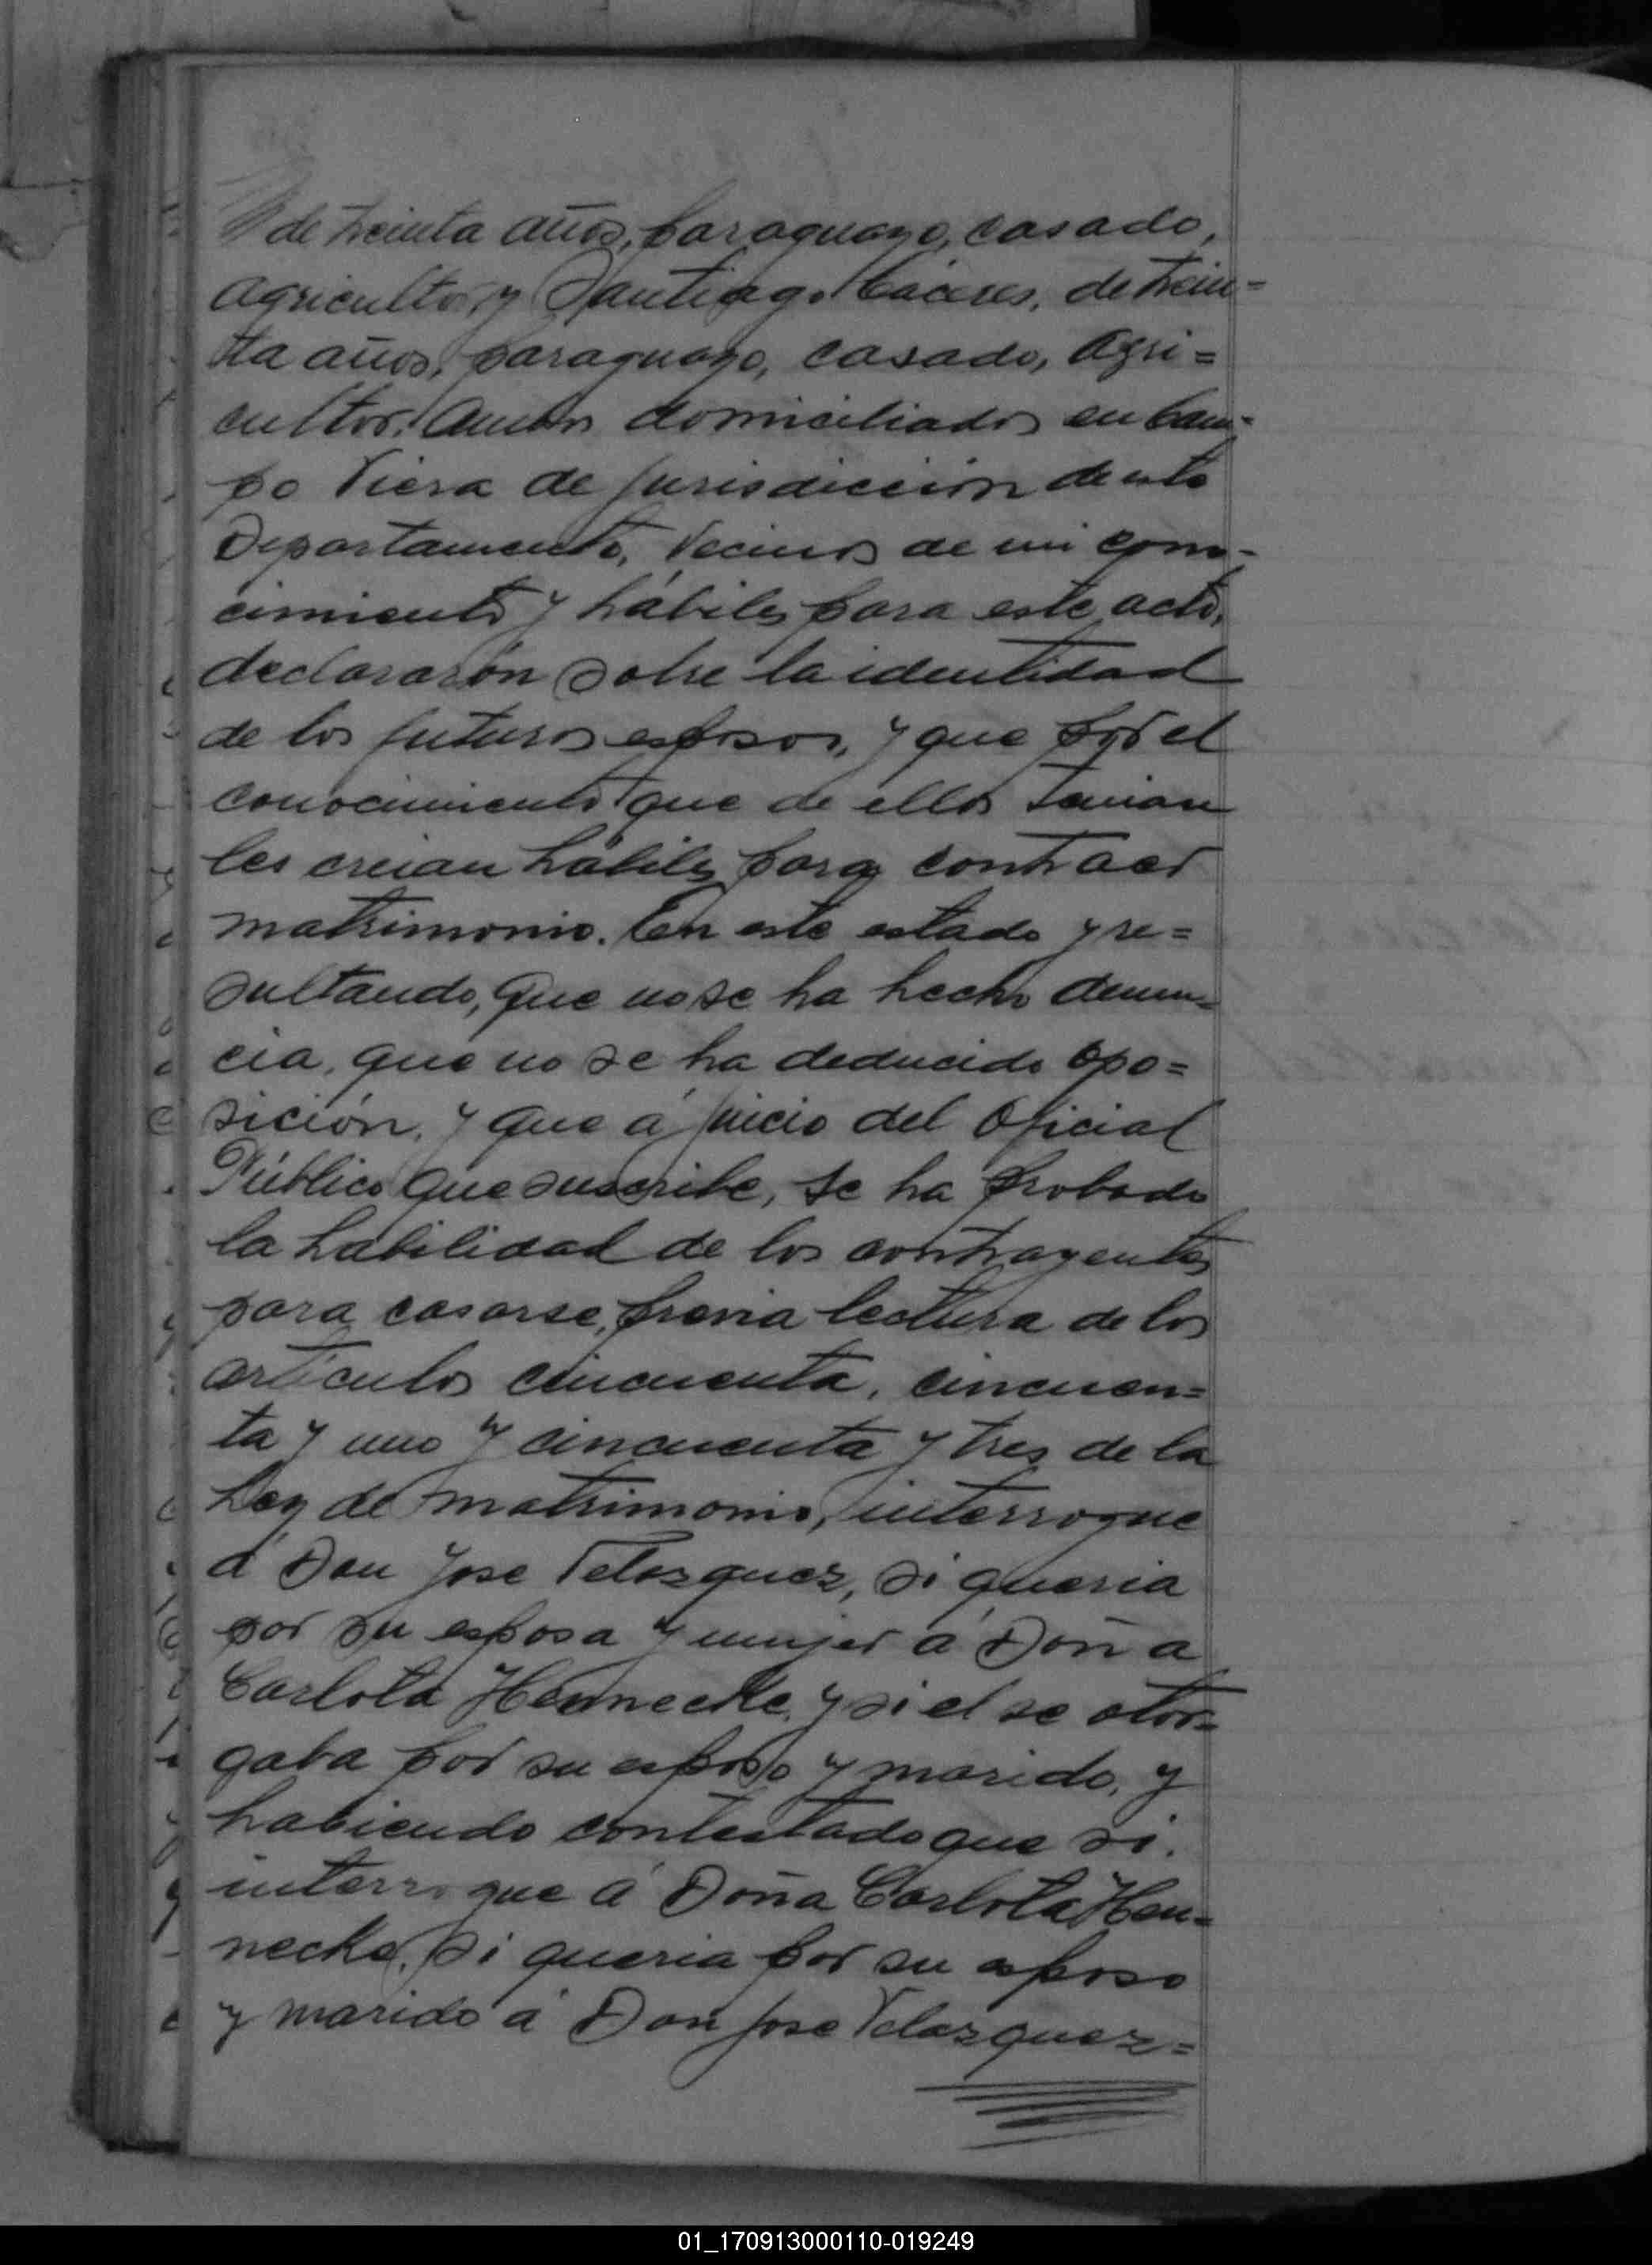 de treinta años, paraguayo, casado,
agricultor, y Santiago Cáceres, de trein-
ta años, paraguayo, casado, Agri=
cultor. Ambos domiciliados en Cam-
po Viera de jurisdicción de este
Departamento, Vecinos de mi cono-
cimiento y hábiles para este acto,
declararón sobre la identidad
de los futuros esposos, y que por el
conocimiento que de ellos tenian
les creian hábiles para contraer
matrimonio. En este estado y re=
sultando, que no se ha hecho denun=
cia, que no se ha deducido opo=
sición, y que á juicio del Oficial
Público que suscribe, se ha probado
la habilidad de los contrayentes
para casarse, previa lectura de los
artículos cincuenta, cincuen=
ta y uno y cincuenta y tres de la
Ley de matrimonio, interrogue
á Don Jose Velazquez, si queria
por su esposa y mujer á Doña
Carlota Hennecke, y si el se otor=
gaba por su esposo y marido, y
habiendo contestado que si.
interrogue á Doña Carlota Hen=
necke, si queria por su esposo
y marido á Don Jose Velazquez=
01_170913000110-019249